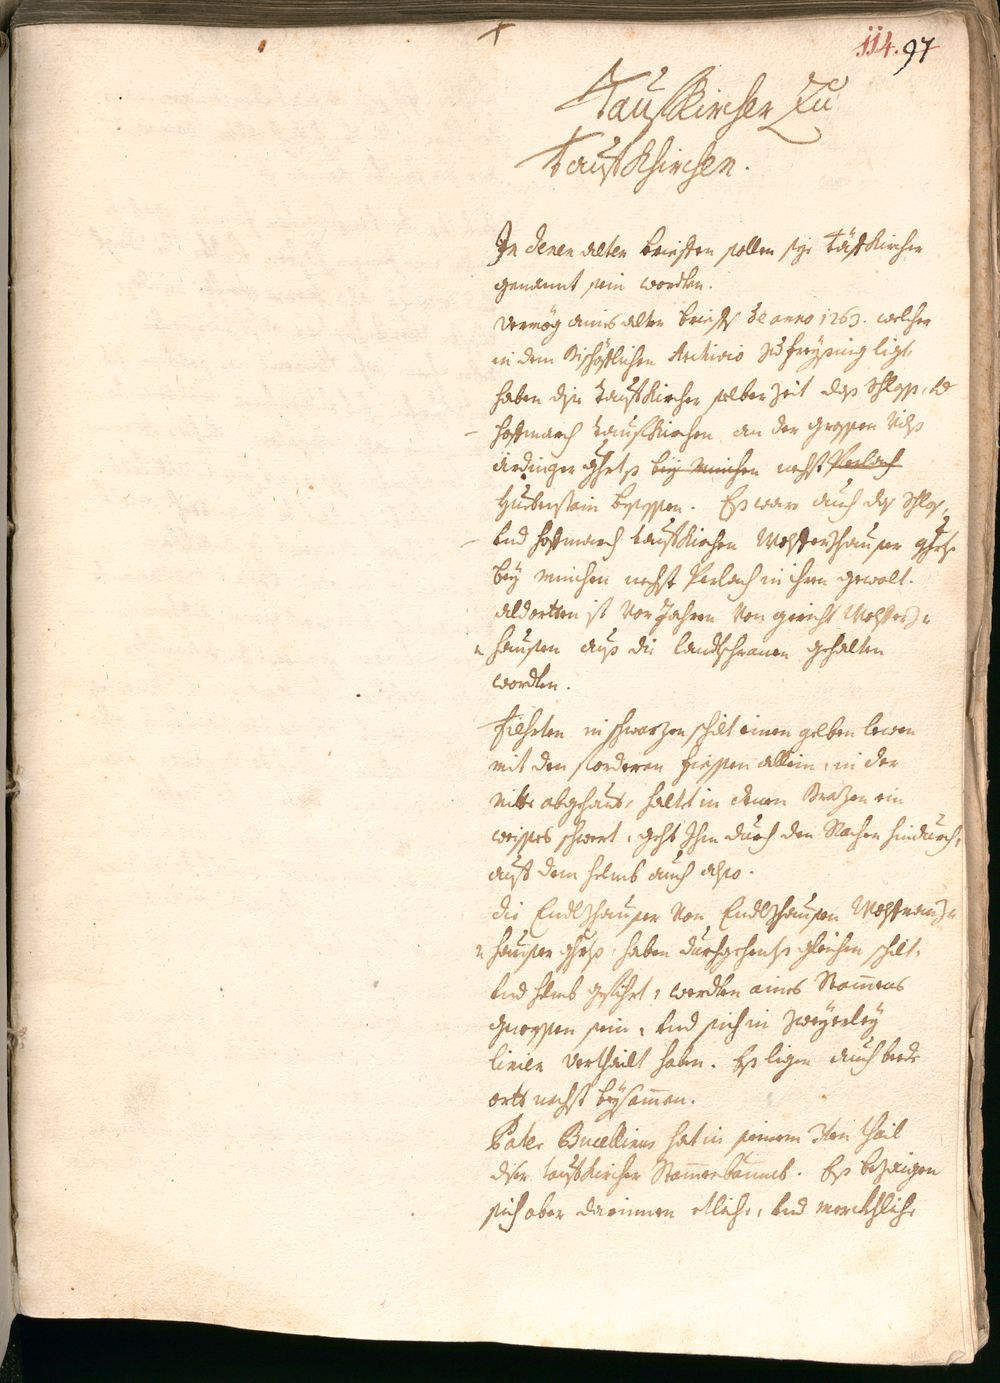 114. 97
Tauffkircher Zu
Tauffkhirchen.
In denen alten brieffen sollen sye Täffkircher
genannt sein wordten.
Vermög aines alten brieffs de anno 1263. welcher
in dem Bischöfflichen Archivio zu Freysing ligt,
haben dise Tauffkircher selber Zeit das Schloss, und
hoffmarch Tauffkirchen an der grossen Vilss
ärdinger ghrts bey München nechst Perlach
Hueberstain besessen. Es ware auch das Schloss,
und hoffmarch Tauffkirchen Wolfertshauser ghrts
bey München nechst Perlach in ihren gewalt.
aldorten ist vor Jahren von gericht Wolferts=
=hausen auss die landtschrannen gehalten
wordten.
Fiehrten in schwarzen schilt einen gelben lewen
mit den forderen fiessen allein, in der
mitte abgehaut, haltt in denen Brazen ein
weisses schwert, geht Ihm durch den Rachen hindurch,
auff dem helmb auch also.
die Endlzhauser von Endlzhausen Wolfrarz=
=hauser ghrts haben durchgehents gleichen schilt,
und helmb gefihrt, werdten aines Stammens
gwessen sein, und sich in zweyerley
linien verthailt haben. Es ligen auch beede
orth nechst beysammen.
Pater Bucellinus hat in seinem 3ten theil
diser Tauffkircher Stammenbaumb. Es bezaigen
sich aber darinnen etliche, und merckhliche